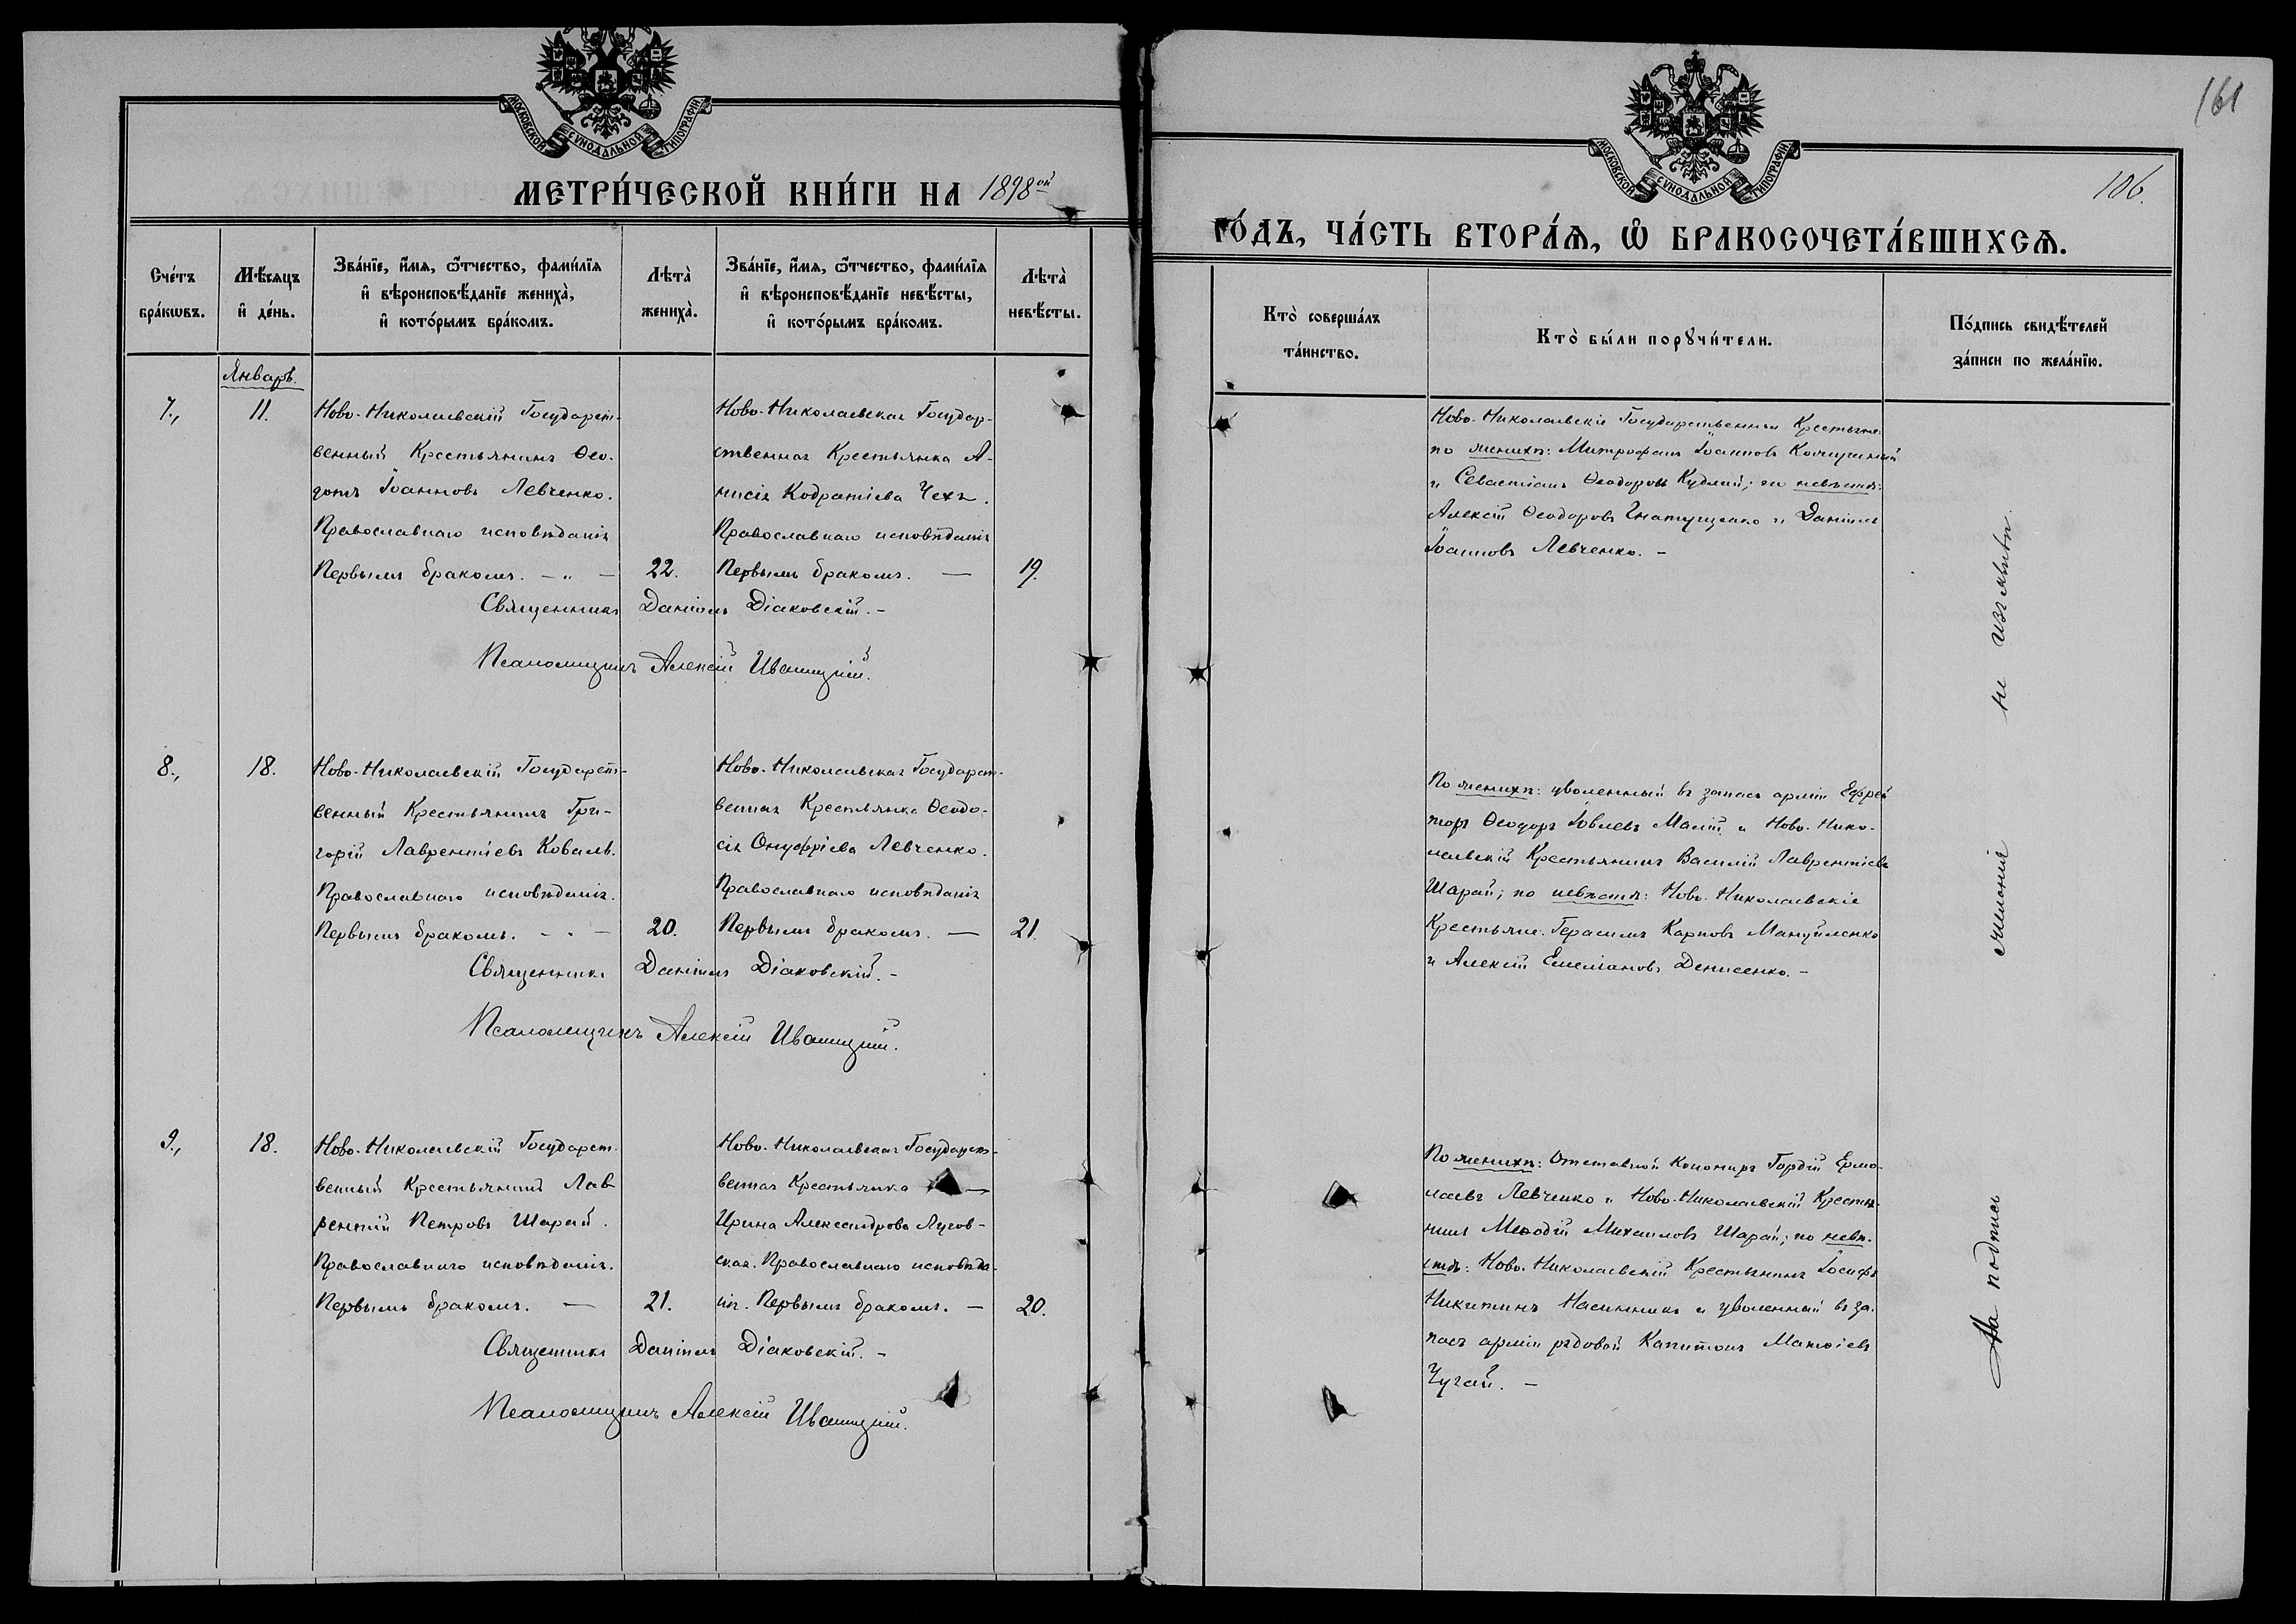 МОСКОВСКОЙ СѴНОДАЛЬНОЙ ТИПОГРАФІИ
МЕТРИ́ЧЕСКОЙ КНИ́ГИ НА 1898ой
Сче́тъ бра́кѡвъ.
Мѣ́сяцъ и҆ де́нь.
Зва́нїе, и҆́мѧ, ѻ҆́тчество, фами́лїѧ и҆ вѣроисповѣ́данїе жениха̀, и҆ кото́рымъ бра́комъ.
Лѣта̀ жениха̀.
Зва́нїе, и҆́мѧ, ѻ҆́тчество, фами́лїѧ и҆ вѣроисповѣ́данїе невѣ́сты, и҆ кото́рымъ бра́комъ.
Лѣта̀ невѣ́сты.
Январь.
7., 11.
Ново-Николаевскій Государст-
венный Крестьянинъ Ѳео-
дотъ Іоанновъ Левченко.
Православнаго исповѣданія
Первымъ бракомъ. — „ — 22.
Ново-Николаевская Государ-
ственная Крестьянка А-
нисія Кодратіева Чехъ.
Православнаго исповѣданія
Первымъ бракомъ. — 19.
Священникъ Даніилъ Діаковскій. -
Псаломщикъ Алексій Ивашицкій.
8., 18.
Ново-Николаевскій Государст-
венный Крестьянинъ Гри-
горій Лаврентіевъ Коваль.
Православнаго исповѣданія.
Первымъ бракомъ. - . - 20.
Ново-Николаевская Государст-
венная Крестьянка Ѳеодо-
сія Онуфріева Левченко.
Православнаго исповѣданія
Первымъ бракомъ. — 21.
Священникъ Даніилъ Діаковскій. -
Псаломщикъ Алексій Ивашицкій.
9., 18.
Ново-Николаевскій Государст-
венный Крестьянинъ Лав-
рентій Петровъ Шарай.
Православнаго исповѣданія.
Первымъ бракомъ. — 21.
Ново-Николаевская Государст-
венная Крестьянка —
Ирина Александрова Лугов-
ская. Православнаго исповѣда-
нія. Первымъ бракомъ. — 20.
Священникъ Даніилъ Діаковскій. -
Псаломщикъ Алексій Ивашицкій.
161
106.
МОСКОВСКОЙ СѴНОДАЛЬНОЙ ТИПОГРАФІИ
ГО́ДЪ, ЧА́СТЬ ВТОРА́Ѧ, Ѽ БРАКОСОЧЕТА́ВШИХСѦ.
Кто̀ соверша́лъ та́инство.
Кто̀ бы́ли порꙋчи́тели.
По́дпись свидѣ́телей за́писи по жела́нїю.
Ново-Николаевскіе Государственные Крестьяне:
по женихѣ: Митрофанъ Іоанновъ
и Севастіанъ Ѳеодоровъ Кудлай; по невѣстѣ:
Алексій Ѳеодоровъ Гнатущенко и Даніилъ
Іоанновъ Левченко. -
По женихѣ: уволенный въ запасъ арміи Ефрей
торъ Ѳеодоръ Іовлевъ Малій и Ново-Нико-
лаевскій Крестьянинъ Василій Лаврентіевъ
Шарай; по невѣстѣ: Ново-Николаевскіе
Крестьяне: Герасимъ Карповъ Мануйленко
и Алексій Емеліановъ Денисенко. -
По женихѣ: Отставной Канониръ Гордій Ермо-
лаевъ Левченко и Ново-Николаевскій Крестья-
нинъ Меѳодій Михаиловъ Шарай; по невѣ-
стѣ: Ново-Николаевскій Крестьянинъ Іосифъ
Никитинъ Насинникъ и уволенный въ за-
пасъ арміи рядовой Капитонъ Матѳіевъ
Чугай. -
На подпись желанія не изъявили.